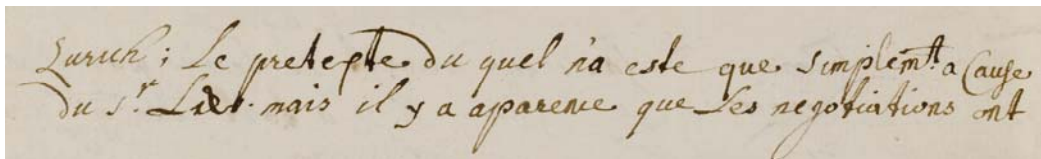 Zurich; Le pretexte du quel n'a este que simplemt. a Cause
du Sr. mais il y a aparence que Les negotiations ont